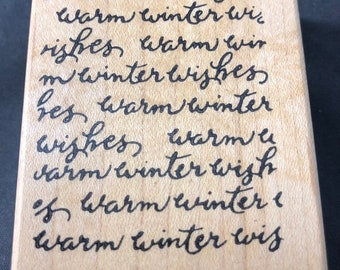 warm winter wis
wishes warm win
m winter wishes
hes warm winter
wishes warm w
warm winter wish
es warm winter w
warm winter wis